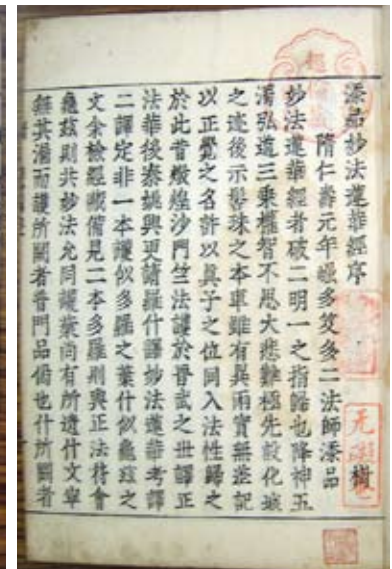 添品妙法蓮華經序
樹
隋仁壽元年崛多笈多二法師添品
妙法蓮華經者破二明一之指歸也降神五
濁弘道三乘權智不思大悲難極先設化城
之迹後示髻珠之本車雖有異雨實無差記
以正覺之名許以眞子之位同入法性歸之
於此昔燉煌沙門竺法護於晉武之世譯正
法華後秦姚興更請羅什譯妙法蓮華考譯
二譯定非一本護似多羅之葉什似龜茲之
文余檢經藏備見二本多羅則與正法符會
龜茲則共妙法允同護葉尚有所遺什文寧
無其漏而護所闕者普門品偈也什所闕者